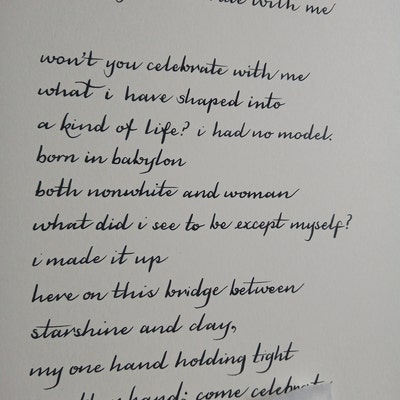 with me
won't you celebrate with me
what i have shaped into
a kind of life? i had no model.
born in babylon
both nonwhite and woman
what did i see to be except myself?
i made it up
here on this bridge between
starshine and clay,
my one hand holding tight
hand; come celebrate